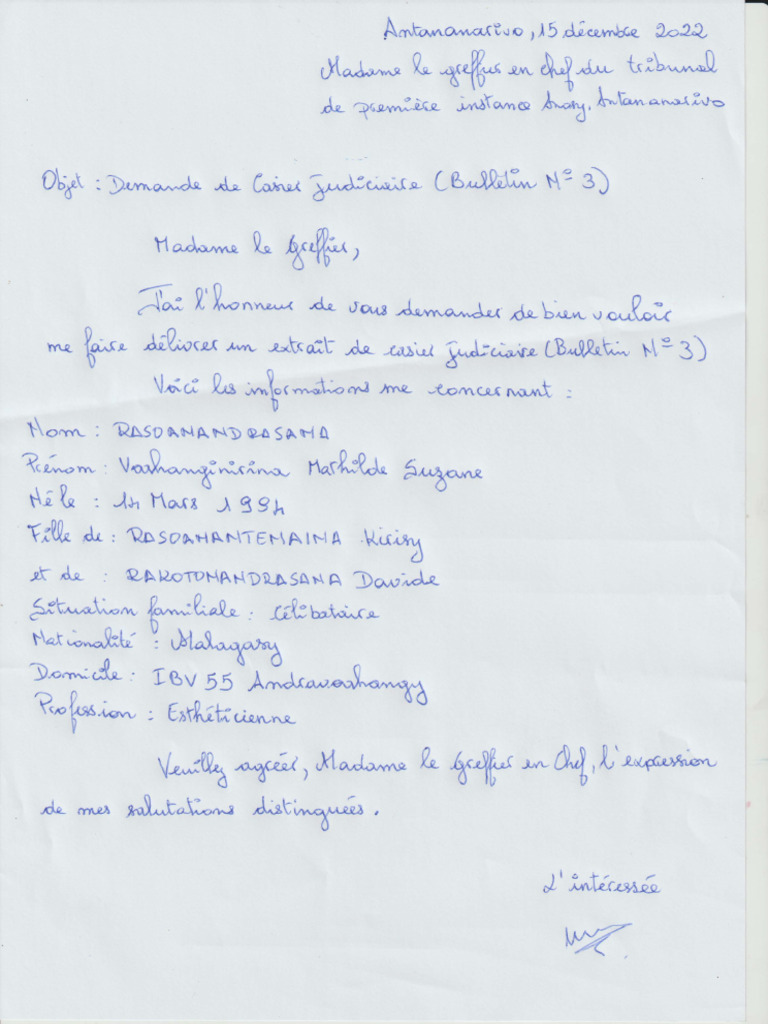 Antananarivo, 15 décembre 2022
Madame le greffier en chef du tribunal
de première instance Anosy, Antananarivo
Objet : Demande de Casier judiciaire (Bulletin N° 3)
Madame le Greffier,
J'ai l'honneur de vous demander de bien vouloir
me faire délivrer un extrait de casier judiciaire (Bulletin N° 3)
Voici les informations me concernant :
Nom : RASOANANDRASANA
Prénom : Voahanginirina Mathilde Suzane
Né le : 14 Mars 1994
Fille de : RASOANANTENAINA Kirisy
et de : RAKOTONANDRASANA Davide
Situation familiale : Célibataire
Nationalité : Malagasy
Domicile : IBV 55 Andravoahangy
Profession : Esthéticienne
Veuillez agréer, Madame le Greffier en Chef, l'expression
de mes salutations distinguées.
L'intéressée